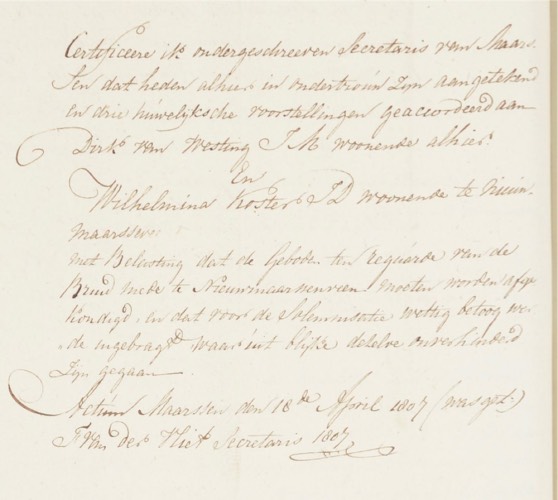 Certificeere ik ondergeschreeven Secretaris van Maars-
sen dat heden alhier in ondertrouw Zyn aangetekend
en drie huwelyksche voorstellingen geaccordeerd aan
Dirk van Westing J M woonende alhier
En
Wilhelmina Koster J D woonende te Nieuw-
maarsseve
met Belasting dat de Gebode ten requarde van de
Bruid mede te Nieuwmaarseveen moeten worden afge
kondigd, en dat voor de Solemnisatie wettig betoog wer
de ingebragt waaruit blyke dezelve onverhinderd
Zyn gegaan
Actum Maarssen den 18de April 1807 (was get:)
F van der Vliet Secretaris 1807